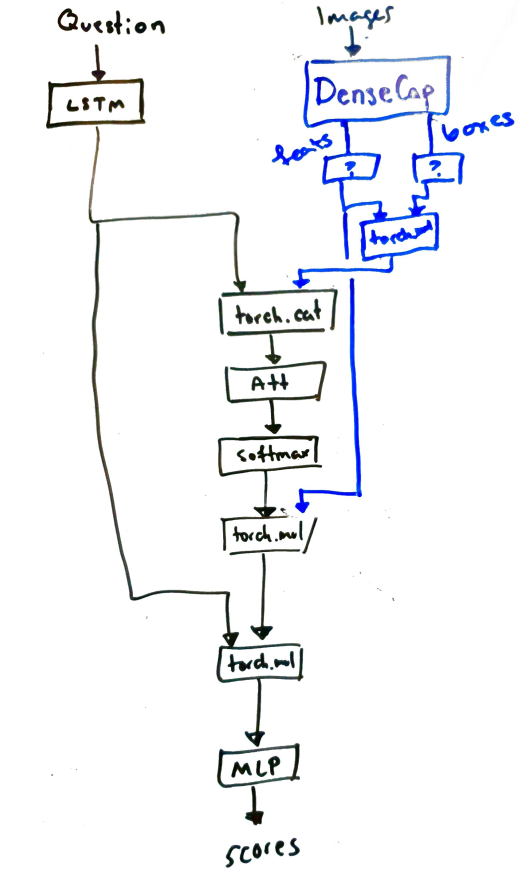 Question
Images
LSTM
DenseCap
feats
boxes
?
?
torch.mul
torch.cat
Att
softmax
torch.mul
torch.mul
MLP
scores